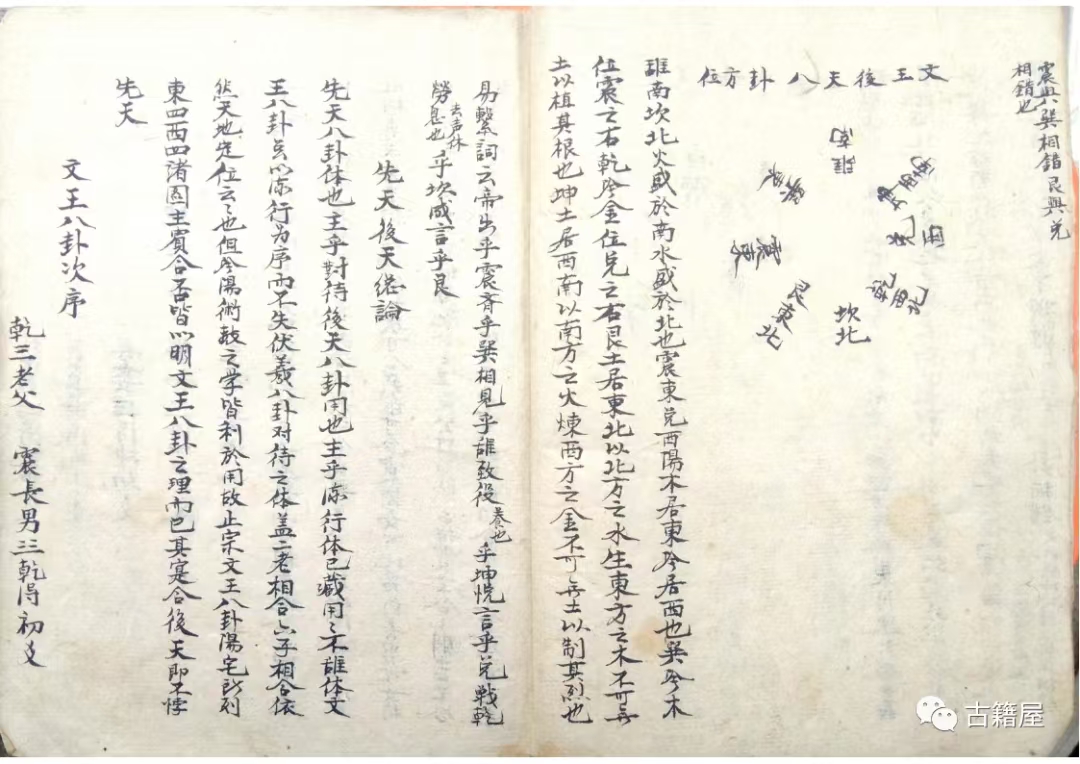 震與巽相錯艮與兌
相錯也
文王後天八卦方位
離南
坤西南
兌西
乾西北
坎北
艮東北
震東
巽東南
離南坎北火盛於南水盛於北也震東兌西陽木居東金居西也巽阴木
位震之右乾阴金位兌之右艮土居東北以北方之水生東方之木不可无
土以植其根也坤土居西南以南方之火煉西方之金不可无土以制其烈也
易繫詞云帝出乎震齐乎巽相見乎離致役養也乎坤悅言乎兌戰乾
勞去声休息也乎坎成言乎艮
先天後天总論
先天八卦体也主乎對待後天八卦用也主乎流行体已藏用々不離体文
王八卦𠀤以流行为序而不失伏羲八卦对待之体盖二老相合六子相合依
然天地定位云々也但阴陽術数之学皆利於用故止宗文王八卦陽宅所列
東四西四諸圖主賓合否皆以明文王八卦之理而已其寔合後天即不悖
先天
文王八卦次序
乾三老父　震長男三乾得初爻
古籍屋